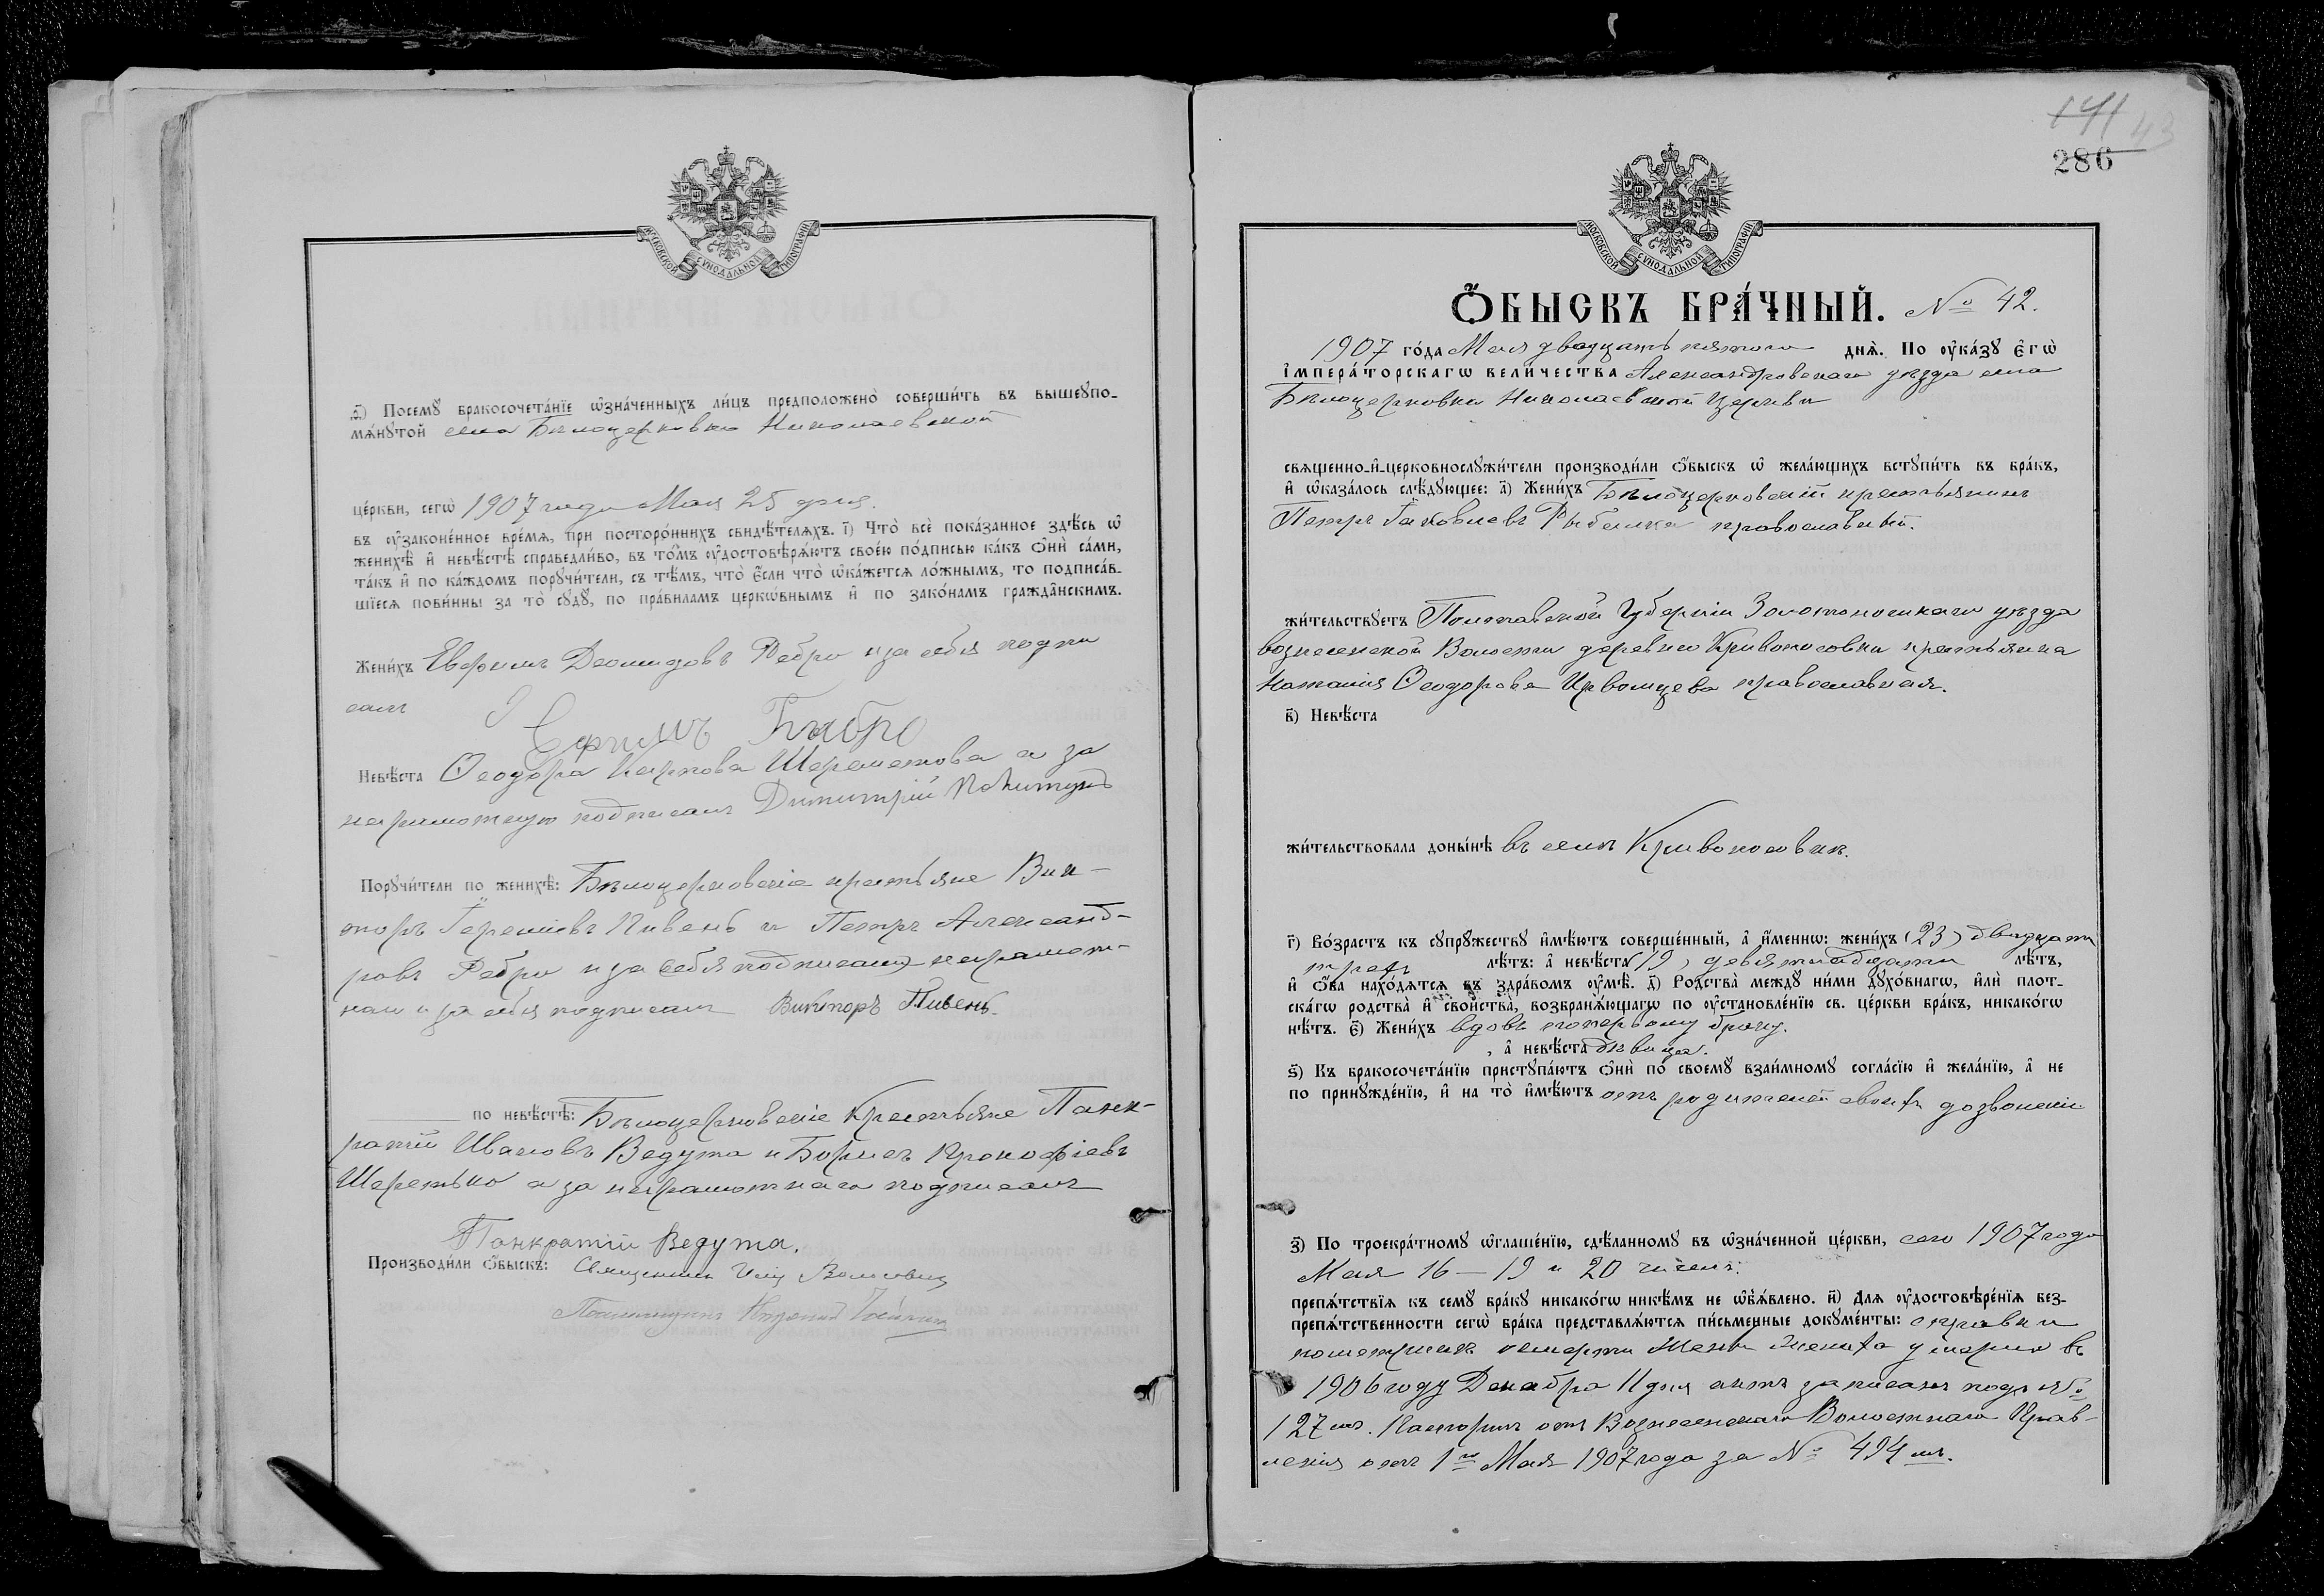 МОСКОВСКОЙ СѴНОДАЛЬНОЙ ТИПОГРАФІИ
д҃) Посемꙋ бракосочета́нїе ѡ҆зна́ченныхъ ли́цъ предположено̀ соверши́ть въ вышеꙋпо-
мѧ́нꙋтой села Бѣлоцерковки Николаевской
це́ркви, сегѡ̀ 1907 года Мая 25 дня.
въ ᲂу҆законе́нное вре́мѧ, при посторо́ннихъ свидѣ́телѧхъ. і҃) Что̀ всѐ пока́занное здѣ́сь ѡ҆
женихѣ̀ и҆ невѣ́стѣ справедли́во, въ то́мъ ᲂу҆достовѣрѧ́ютъ свое́ю по́дписью ка́къ ѻ҆нѝ са́ми,
та́къ и҆ по ка́ждомъ порꙋчи́тели, съ тѣ́мъ, что̀ є҆́сли что̀ ѡ҆ка́жетсѧ ло́жнымъ, то подписа́в-
шїесѧ пови́нны за то̀ сꙋдꙋ̀, по пра́виламъ церкѡ́внымъ и҆ по зако́намъ гражда̑нскимъ.
Жени́хъ Евфимъ Деомидовъ Ребро и за себя подпи
салъ
Ефимъ
Невѣ́ста Ѳеодора Карпова Шереметова а за
неграмотную подписалъ Димитрій
Порꙋчи́тели по женихѣ̀: Бѣлоцерковскіе крестьяне Вик-
торъ Пивень и Петръ Александ-
ровъ Ребро и за себя подписалъ неграмот-
ный и за себя подписалъ Викторъ Пивень.
по невѣ́стѣ: Бѣлоцерковскіе Крестьяне Панк-
ратій Ивановъ Ведута и Борисъ Прокофіевъ
а за неграмотнаго подписалъ
Панкратій Ведута.
Производи́ли ѻ҆́быскъ: Священникъ
141 43
286
МОСКОВСКОЙ СѴНОДАЛЬНОЙ ТИПОГРАФІИ
Ѻ҆́БЫСКЪ БРА́ЧНЫЙ. № 42.
1907 го́да Мая двадцать пятого днѧ̀. По ᲂу҆ка́зꙋ є҆гѡ̀
і҆мпера́торскагѡ вели́чества Александровскаго уѣзда села
Бѣлоцерковки Николаевской церкви
свѧщенно-и҆-церковнослꙋжи́тели производи́ли ѻ҆́быскъ ѡ҆ жела́ющихъ встꙋпи́ть въ бра́къ,
и҆ ѡ҆каза́лось слѣ́дꙋющее: а҃) Жени́хъ Бѣлоцерковскій крестьянинъ
Петръ Яковлевъ Рыбалка православный.
жи́тельствꙋетъ Полтавской Губерніи Золотоношскаго уѣзда
вознесенской Волости деревни Кривоносовки крестьянка
Наталія Ѳеодорова православная.
в҃) Невѣ́ста
жи́тельствовала доны́нѣ въ селѣ Кривоносовкѣ.
г҃) Во́зрастъ къ сꙋпрꙋ́жествꙋ и҆мѣ́ютъ соверше́нный, а҆ и҆́меннѡ: жени́хъ (23) двадцати
трехъ лѣ́тъ: а҆ невѣ́ста (19) девятнадцати лѣ́тъ,
и҆ ѻ҆́ба нахо́дѧтсѧ въ здра́вомъ ᲂу҆мѣ̀. д҃) Родства̀ междꙋ̀ ни́ми дꙋхо́внагѡ, и҆лѝ пло́т-
скагѡ родства̀ и҆ сво́йства̀, возбранѧ́ющагѡ по ᲂу҆становле́нїю св. це́ркви бра́къ, никако́гѡ
нѣ́тъ. є҃) Жени́хъ вдовъ поперьвому браку.
, а҆ невѣ́ста дѣвица.
ѕ҃) Къ бракосочета́нїю пристꙋпа́ютъ ѻ҆нѝ по своемꙋ̀ взаи́мномꙋ согла́сїю и҆ жела́нїю, а҆ не
по принꙋжде́нїю, и҆ на то̀ и҆мѣ́ютъ отъ родителей своихъ дозволеніе
з҃) По троекра́тномꙋ ѡ҆глаше́нїю, сдѣ́ланномꙋ въ ѡ҆зна́ченной це́ркви, сего 1907 года
Мая 16 — 19 и 20 чиселъ.
препѧ́тствїѧ къ семꙋ̀ бра́кꙋ никако́гѡ никѣ́мъ не ѡ҆б̾ѧ́влено. и҃) Длѧ ᲂу҆достовѣре́нїѧ без-
препѧ́тственности сегѡ̀ бра́ка представлѧ́ютсѧ пи́сьменные докꙋме́нты: справки
о смерти Жены жениха умерла въ
1906 году Декабря 11 дня актъ записанъ подъ №
127 мъ. Паспортъ отъ Вознесенскаго Волостнаго Прав-
ленія отъ 1го Мая 1907 года за № 494 мъ.